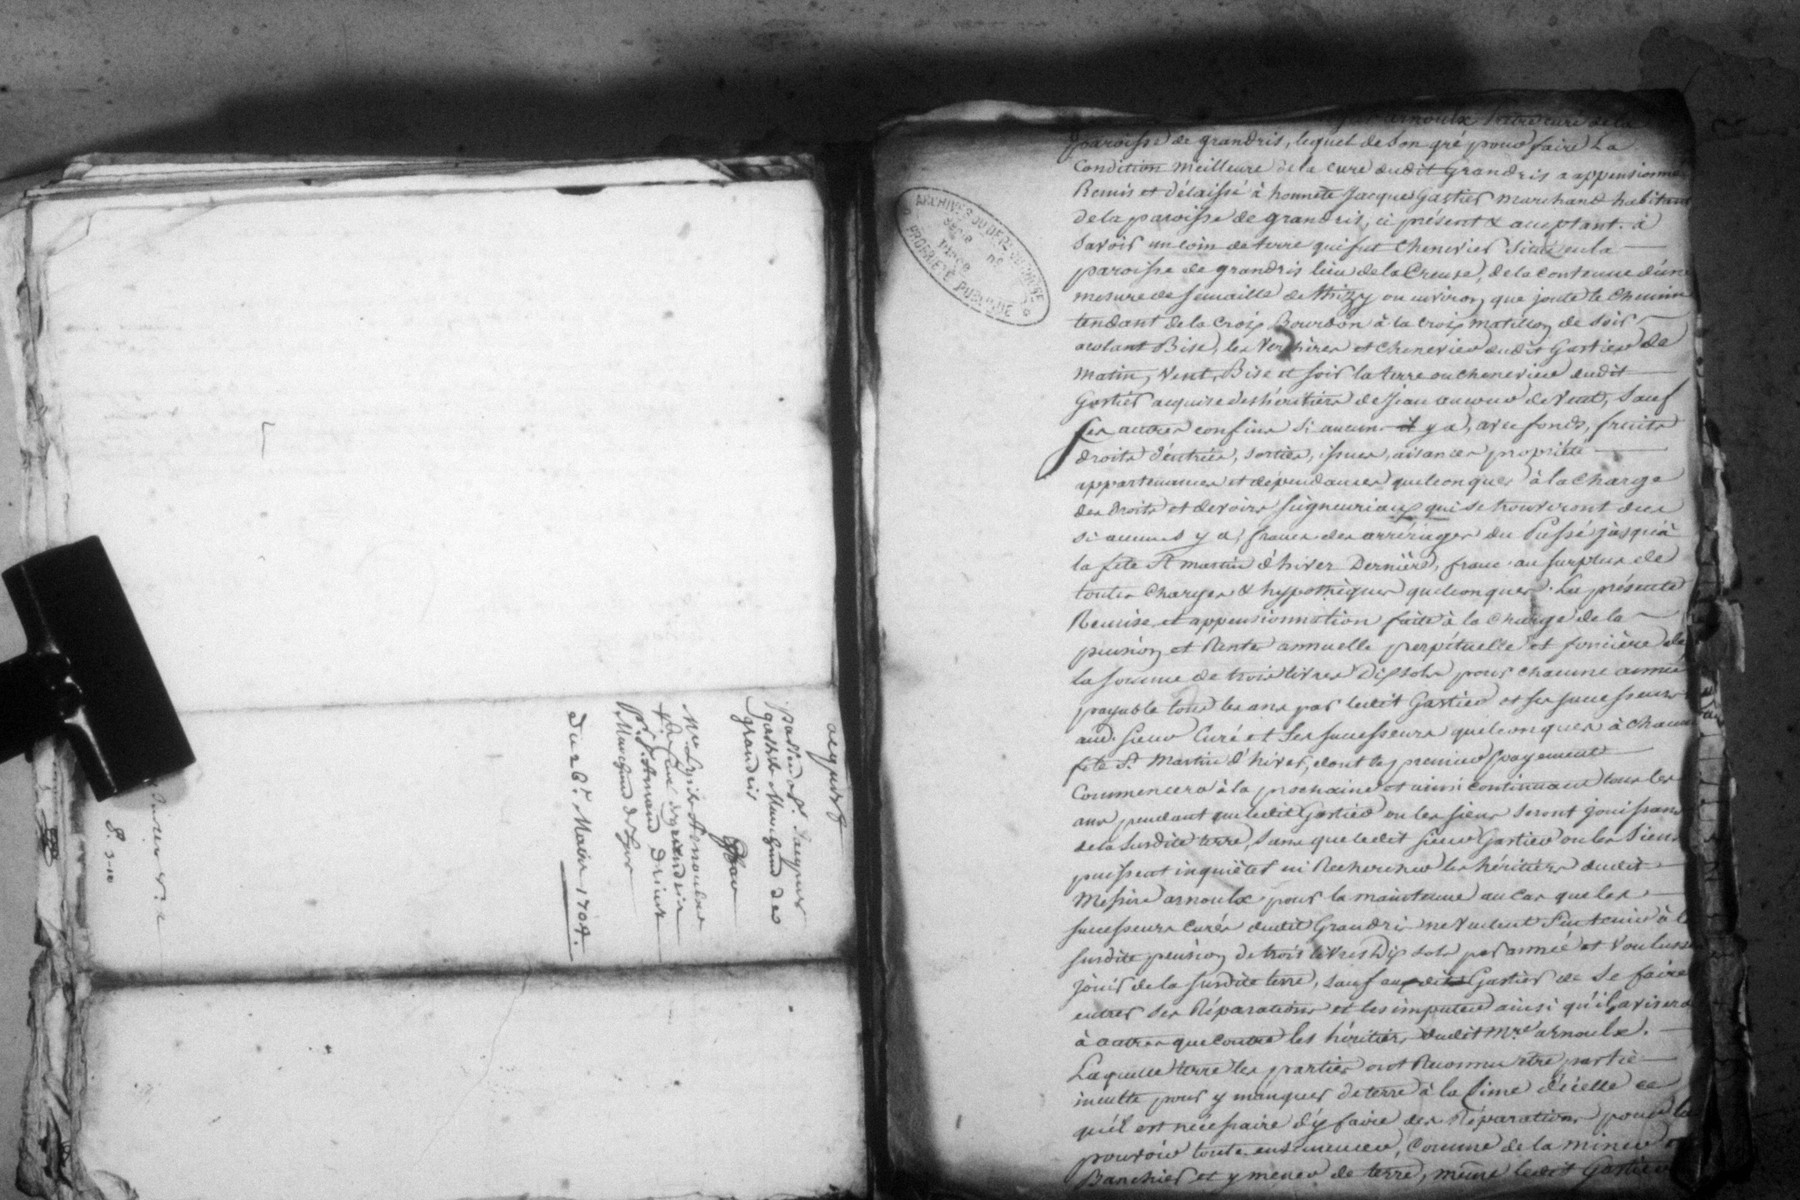 acquit
passé à Sr. Jacques
gastié Marchand de
grandris
Par
Mre Arnoulx
curé de grandris
Marchand de
Du 26e. Mars 1704.
8. 3-10
ARCHIVES DU DEPT DU RHONE
PROPRIETE PUBLIQUE
arnoulx Pretre curé de la
paroisse de grandris, lequel de son gré pour faire La
Condition meilleure de la cure dudit Grandris a appensionné
Remis et délaissé à honnete Jacque Gastier marchand habitant
de la paroisse de grandris, ci présent & acceptant. à
Savoir un coin de terre qui fut chenevier situé en la
paroisse de grandris lieu de la Creuse, de la contenue d'une
mesure de semaille de thizy ou environ, que joute le chemin
tendant de la Croix Bourdon à la croix matillon de soir
avolant Bise, les Verchères et chenevier dudit Gastier de
matin, Vent, Bise et soir la terre ou cheneviere dudit
Gastier acquise des héritiers de Jean de Vent, Sauf
Les autres confins si aucun il y a, avec fonds, fruits
droits d'entrées, sorties, issues, aisances propriété
appartenances et dépendances quelconques à la charge
des droits et devoirs seigneuriaux qui se trouveront dus
si aucuns y a, francs des arrérages du Passé jusqu'à
la fete St martin d'hiver Dernière, franc au surplus de
toutes charges & hypothèques quelconques. La présente
Remise et appensionnation faite à la charge de la
pension et Rente annuelle perpétuelle et foncière de
la somme de trois livres dix sols pour chacune année
payable tous les ans par ledit Gastier et ses successeurs
aud. Sieur Curé et Ses successeurs quelconques à chacune
fete St. Martin d'hiver, dont le premier payement
Commencera à la prochaine et ainsi continuant tous les
ans pendant que ledit Gastier ou les siens seront jouissans
de la Susdite terre, Sans que ledit sieur Gastier ou les Siens
puissent inquiéter ni Rechercher les héritiers dudit
Messire arnoulx pour la maintenue au cas que les
successeurs curés dudit Grandris ne veulent s'en tenir à la
susdite pension de trois livres Dix sols par année et voulussent
jouir de la susdite terre, sauf audit Gastier de se faire
entrer Ses Réparations et les imputer ainsi qu'il avisera
à autres que contre les héritiers dudit Mre. arnoulx.
Laquelle terre les parties ont Reconnu être partie
inculte pour y manquer de terre à la Sime d'icelle et
qu'il est nécessaire d'y faire des Réparations pour la
pouvoir toute ensemencer, Comme de la miner
Banchier et y mener de terre, même ledit Gastier